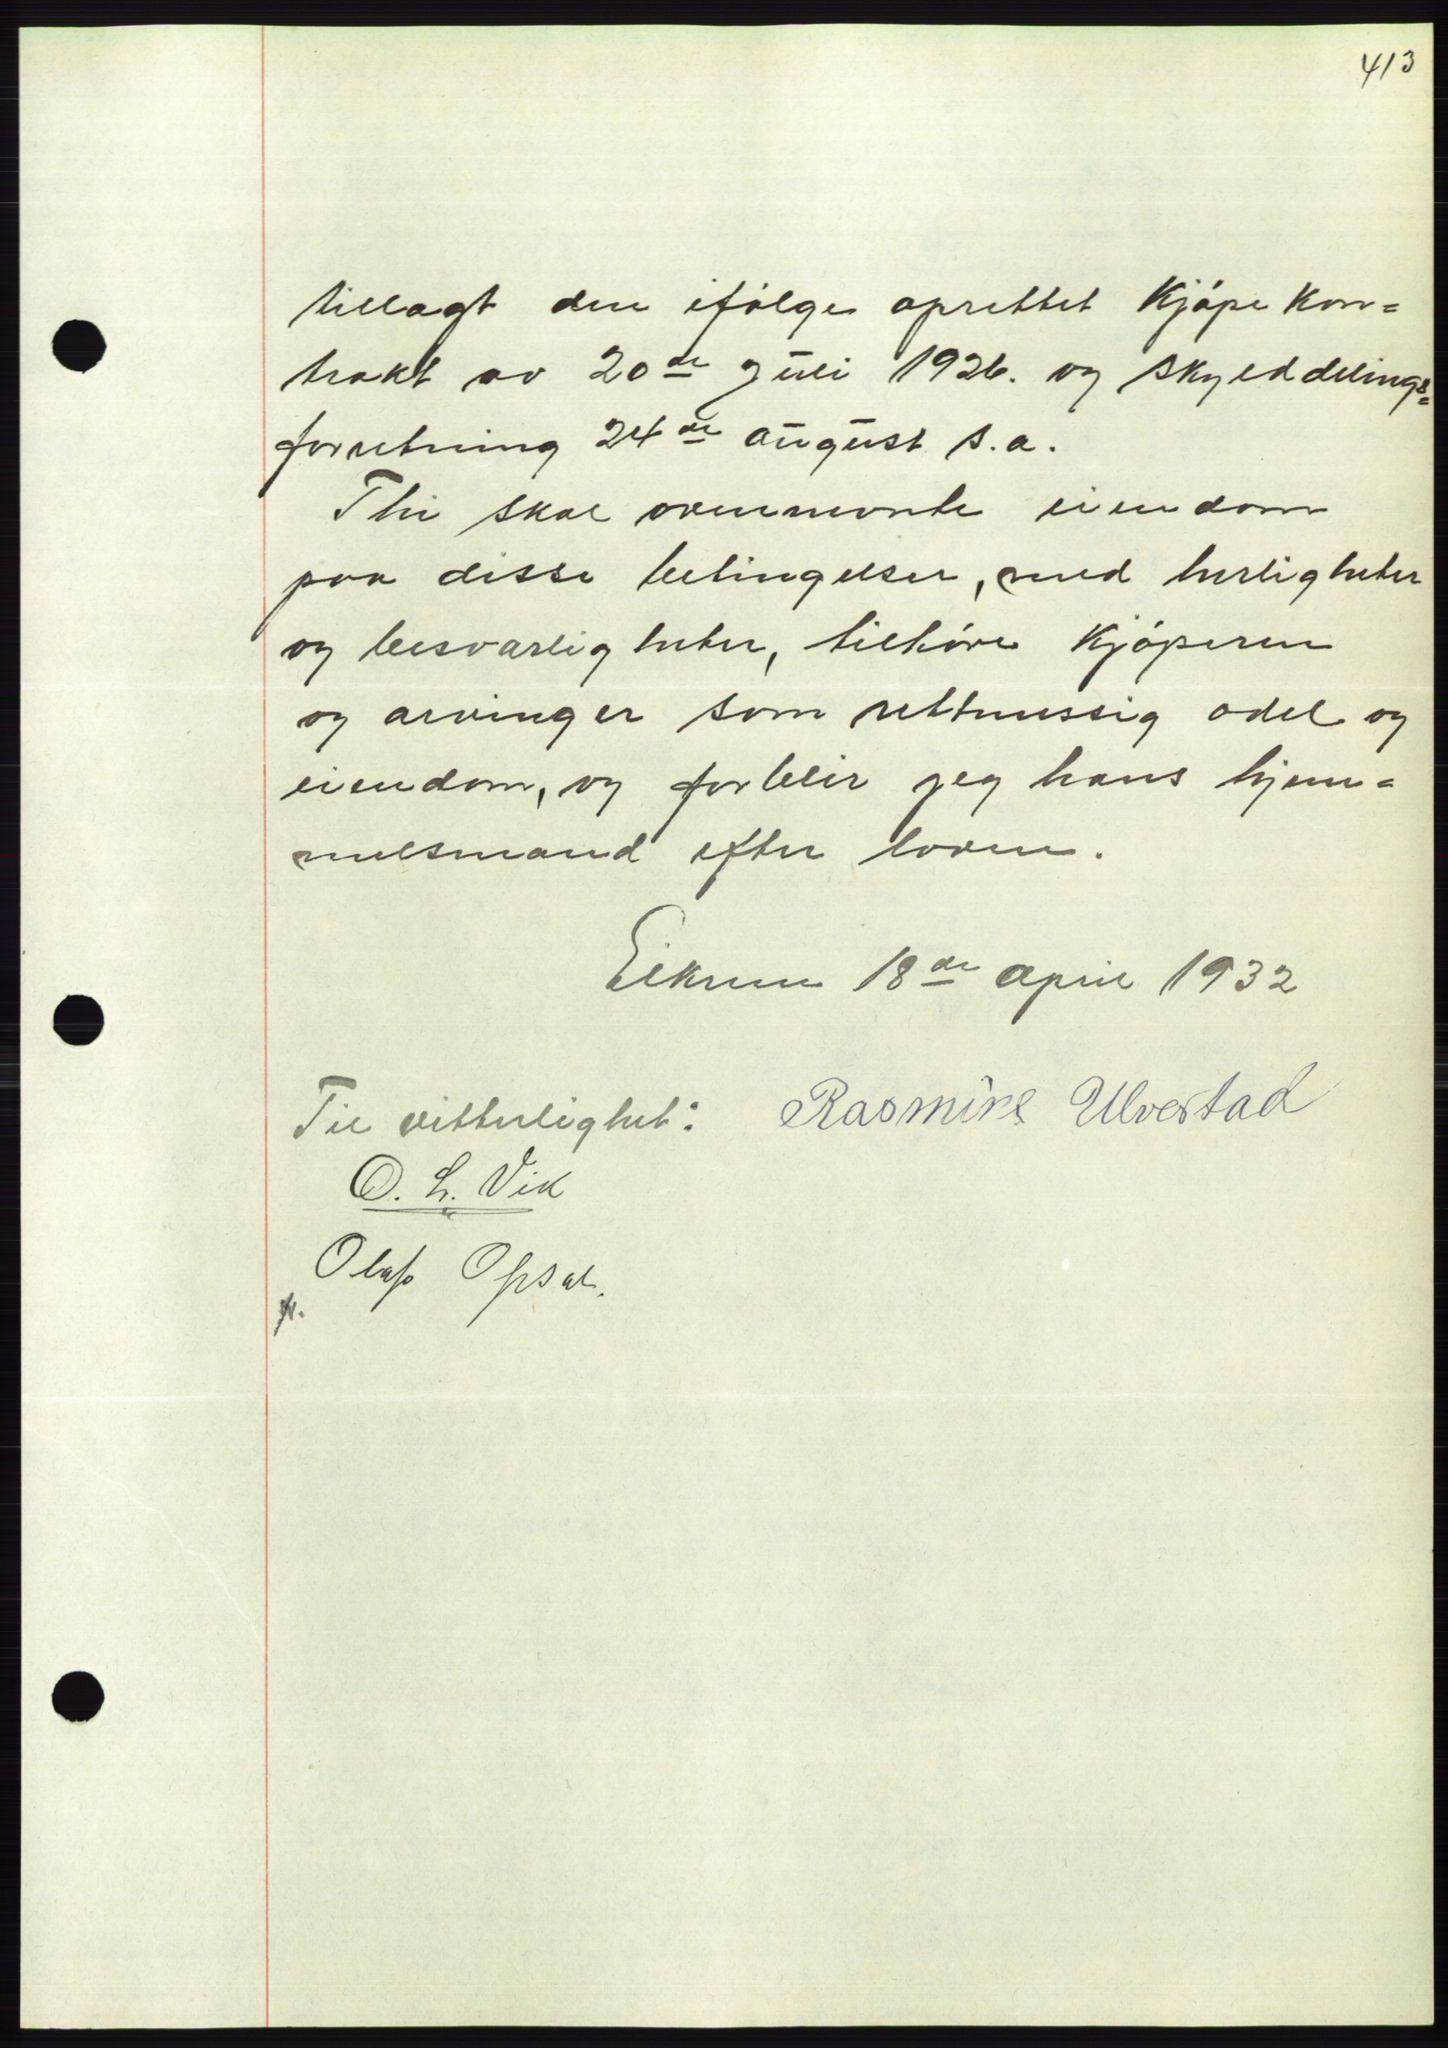 413
tillagt den ifølge oprettet Kjøpe Kon-
trakt av 20de Juli 1926. og skylddelings-
forretning 24de august s.a.
Thi skal ovennevnte eiendom
paa disse betingelser, med herligheter
og besværligheter, tilhøre Kjøperen
og arvinger som rettmessig odel og
eiendom, og forblir jeg hans hjem-
melsmand efter loven.
Eikrem 18de april 1932
Til vitterlighet: Rasmine Ulvestad
O. L. Vik
Olaf Opsal.